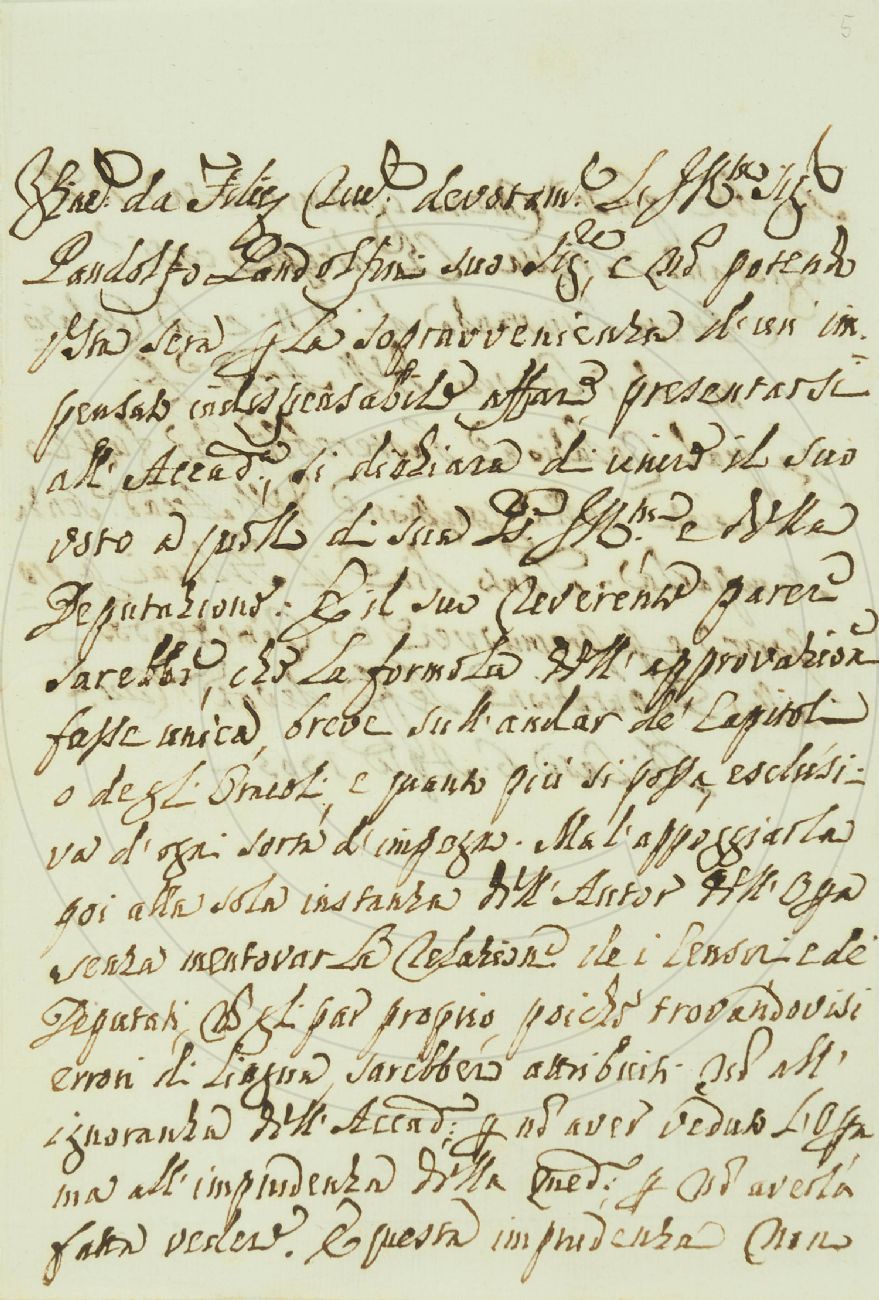 5
da Filic. river. devotam. L'Ill.mo Sig.
Pandolfo Pandolfini suo Sig.re, e nō potendo
q̄sta sera ꝑ la sopravvenienza d'un im-
pensato, indispensabile affare, presentarsi
all'Accad.a, si dichiara di unire il suo
voto a quello di sua Ill.ma e della
Deputazione. E il suo reverente parere
sarebbe, che la formola dell'approvazione
fosse unica, breve sull'andar de' Capitoli
o degl'Oracoli, e quanto più si possa, esclusi-
va d'ogni sorta d'impegno. Ma l'appoggiarla
poi alla sola instanza dell'Autore dell'Opa
senza mentovar la Relazione de i Censori e de'
Deputati, nō gli par proprio, poiché trovandovisi
errori di lingua, sarebber attribuiti nō all'
ignoranza dell'Accad.a, ꝑ nō aver veduto l'Opa
ma all'imprudenza della med.a, ꝑ nō averla
fatta vedere. E questa imprudenza non